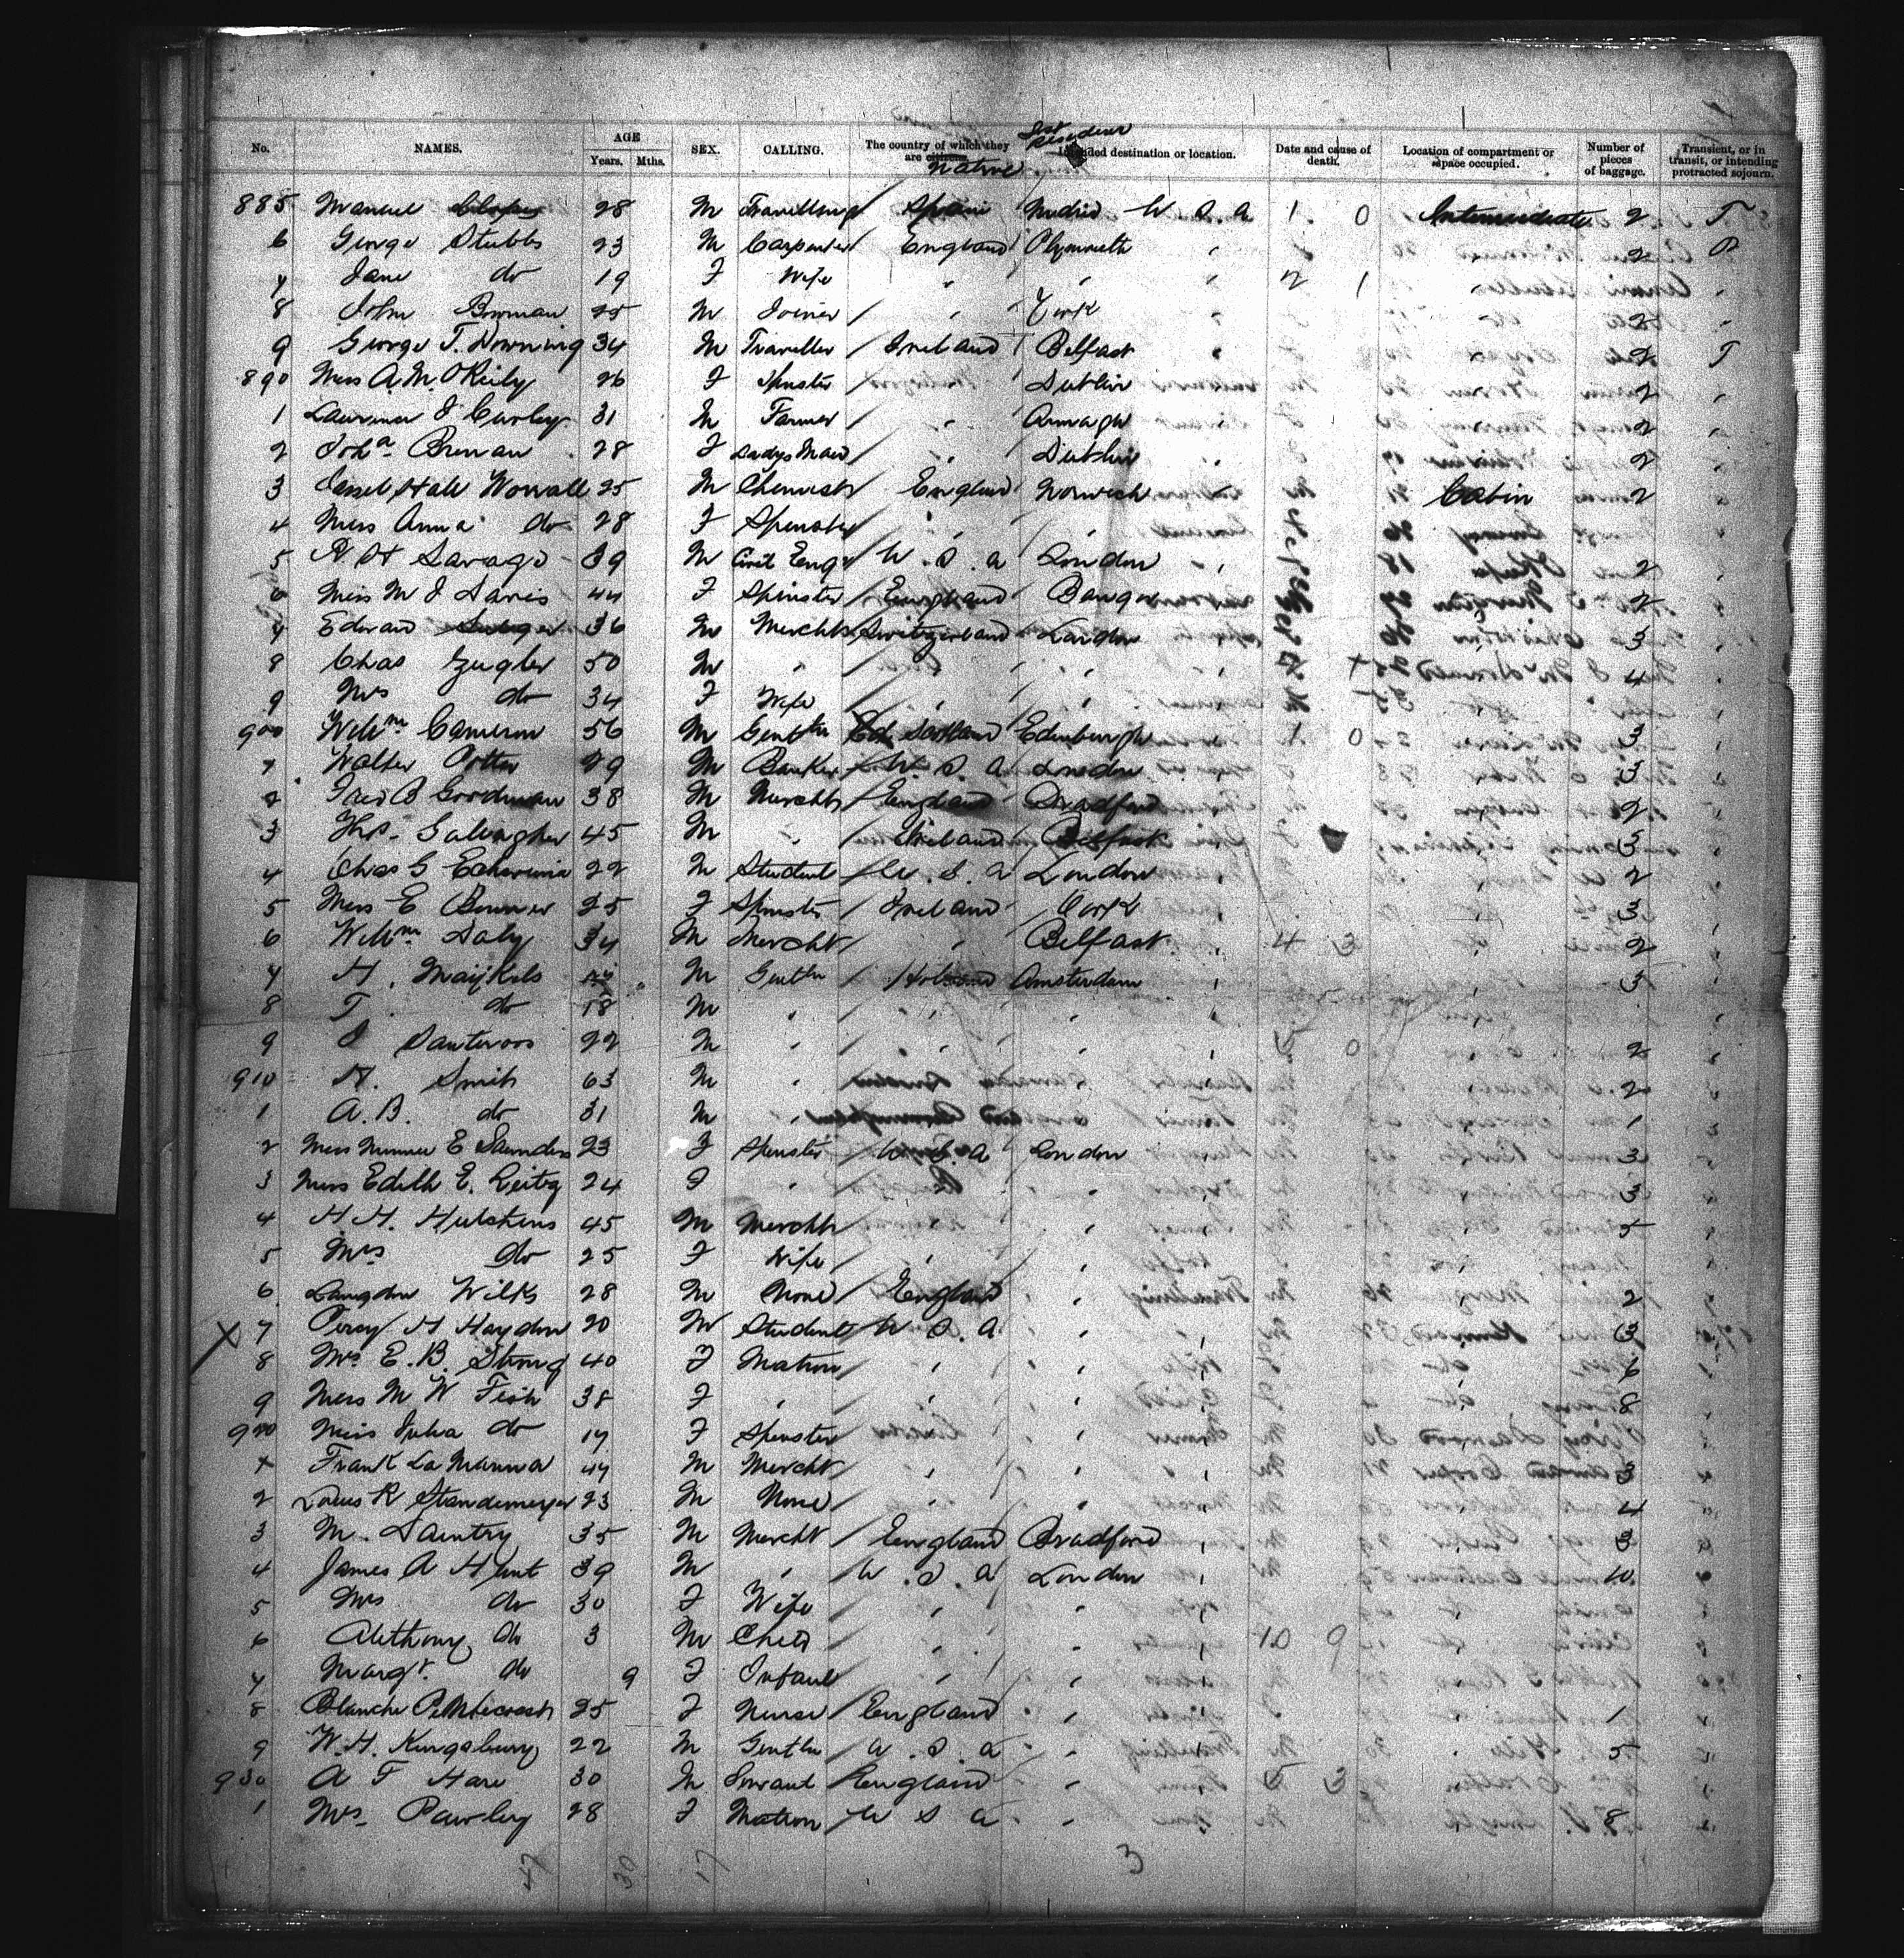 No. NAMES. AGE Years. Mths. SEX. CALLING. The country of which they are citizens. Native Last Residence Intended destination or location. Date and cause of death. Location of compartment or space occupied. Number of pieces of baggage. Transient, or in transit, or intending protracted sojourn.
885 Manuel 28 M Travelling Spain Madrid U S A 1 0 Intermediate 2 T
6 George Stubbs 23 M Carpenter England Plymouth " 2 P
7 Jane do 19 F Wife " " " 2 1 "
8 John Bowman 25 M Joiner " York 2 "
9 George T. Downing 34 M Traveller Ireland Belfast " 2 T
890 Miss A. M. O'Reily 26 F Spinster Dublin 2 "
1 Laurence J Curley 31 M Farmer " Armagh 2 "
2 Joha Brenan 28 F Ladys Maid " Dublin 2 "
3 Hale Worrall 25 M Chemist England Norwich " Cabin 2 "
4 Miss Anna do 28 F Spinster " "
5 Savage 39 M Civil Engr U. S. A London " 2 "
6 Miss M J Davis 44 F Spinster England Bangor 2 "
7 Edward 36 M Mercht Switzerland London 3 "
8 Chas Zugler 50 M " " " 4 "
9 Mrs do 34 F Wife " " "
900 Willm Cameron 56 M Gentln Scotland Edinburgh 1 0 3 "
1 Walter Potter 29 M Banker U. S. A London 3 "
2 Fred B Goodman 38 M Mercht England Bradford 2 "
3 Thos Gallagher 45 M " Ireland Belfast 3 "
4 Chas G Echeverria 22 M Student U. S. A London 2 "
5 Miss E Bowner 25 F Spinster Ireland Cork 3 "
6 Willm Daly 34 M Mercht " Belfast " 4 3 2 "
7 H. Maijkels M Gentln Holland Amsterdam " 3 "
8 T. do 18 M " " " " "
9 J Santvoos 22 M " " " " 5 0 2 "
910 Smith 63 M " " 2 "
1 A. B. do 31 M " 1 "
2 Miss E Saunders 23 F Spinster U. S. A London 3 "
3 Miss Edith E. Leitz 24 F " " " 3 "
4 H H. Hulskens 45 M Mercht " " 5 "
5 Mrs do 25 F Wife " "
6 Langdon Wilks 28 M None England " 2 "
X 7 Percy H Haydon 20 M Student U. S. A " 3 "
8 Mrs E. B. Strong 40 F Matron " " 6 "
9 Miss M W Fish 38 F " " " 8 "
920 Miss Julia do 17 F Spinster " " "
1 Frank La Manna 44 M Mercht " " 3 "
2 Louis R Standemeyer 23 M None " " 4 "
3 M. Daintry 35 M Mercht England Bradford " 3 "
4 James A Hunt 39 M " U. S. A London " 10 "
5 Mrs do 30 F Wife " "
6 Anthony do 3 M Child " " 10 9 "
7 Margt. do 9 F Infant " " "
8 Blanche Pentecost 25 F Nurse England " 1 "
9 W. H. Kingsbury 22 M Gentln U. S. A " 5 "
930 A F Hare 30 M Servant England " 5 3 "
1 Mrs Pawley 28 F Matron U S A " 8 "
47 30 17 3